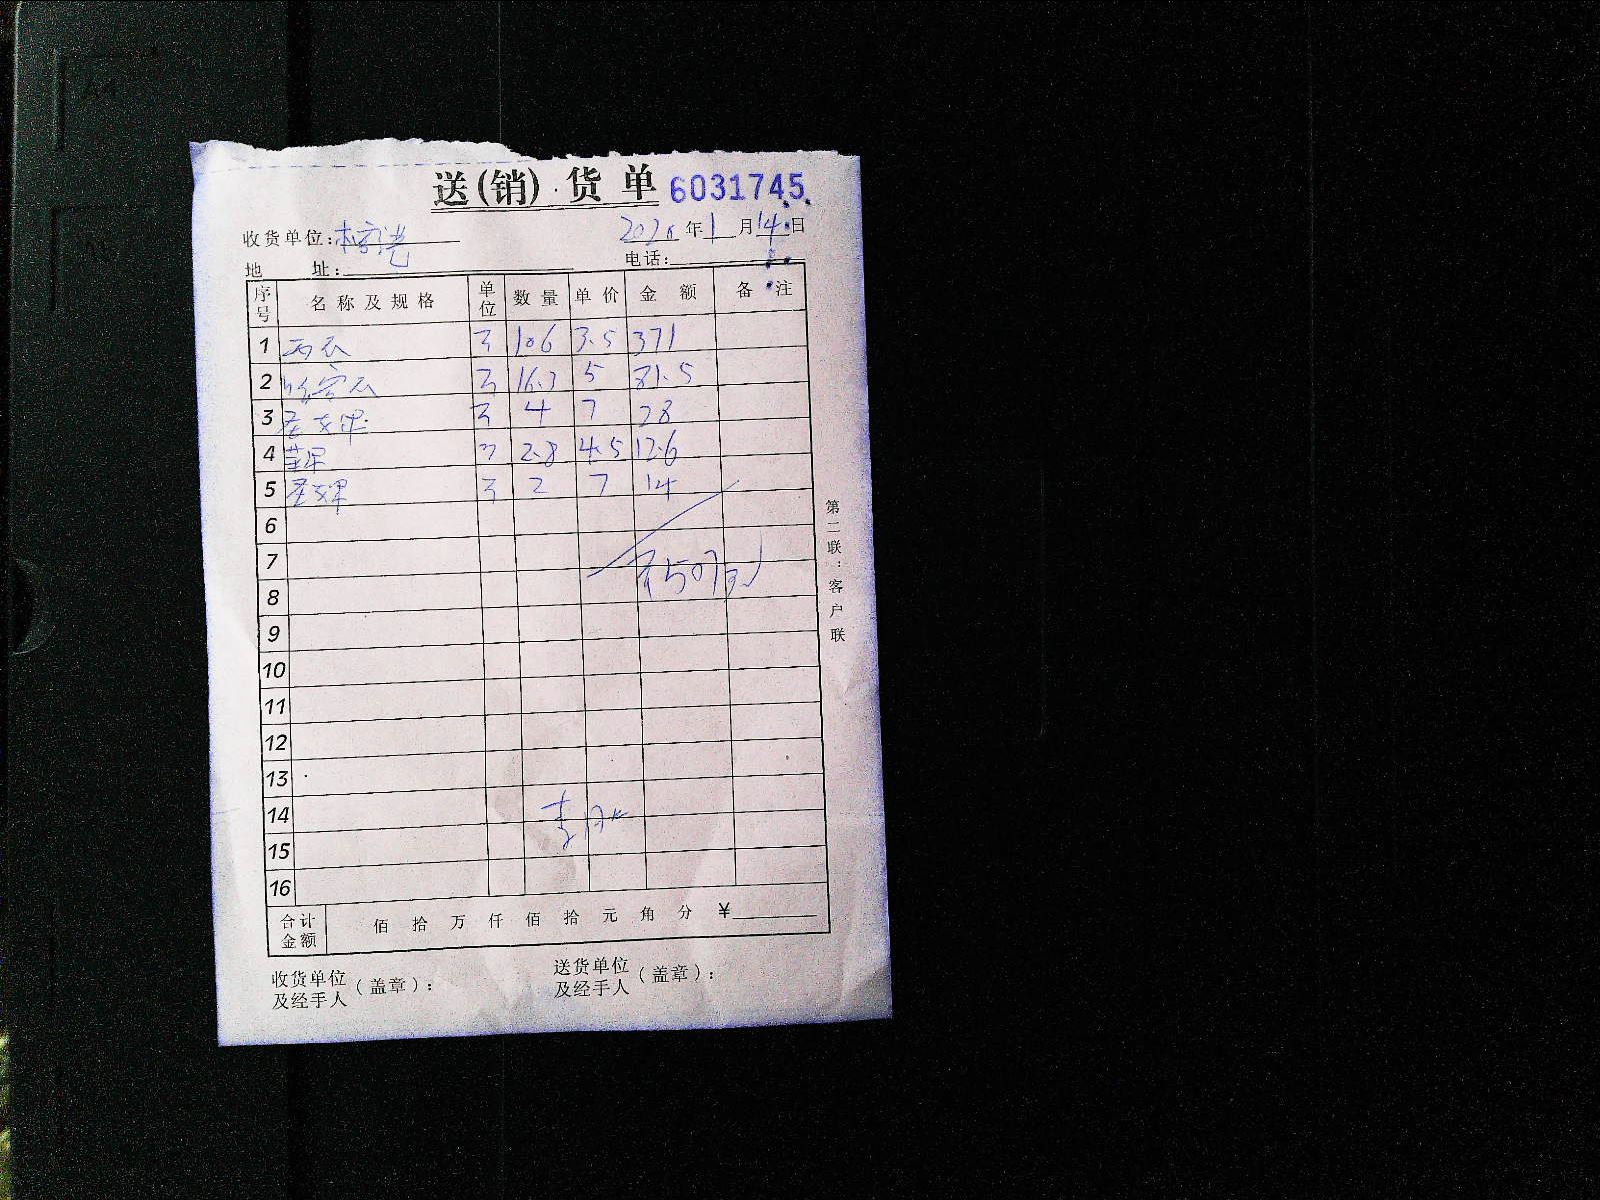 送(销)货单 6031745
收货单位:
年1月14日
地 址:
电话:
序号 名称及规格 单位 数量 单价 金额 备注
1 106 3.5 371
2 16.3 5 81.5
3 圣女果 4 7 28
4 2.8 4.5 12.6
5 圣女果 2 7 14
6
7
8 507
9
10
11
12
13
14
15
16
合计金额 佰 拾 万 仟 佰 拾 元 角 分 ¥
收货单位及经手人(盖章):
送货单位及经手人(盖章):
第二联:客户联